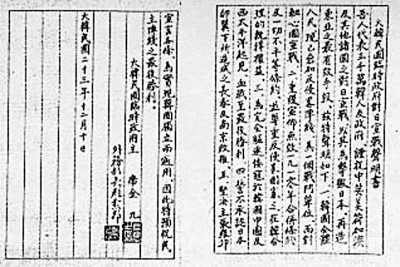 大韓民國臨時政府對日宣戰聲明書
吾人代表三千萬韓人及政府 謹祝中英美荷加澳
及其他諸國之對日宣戰 以其爲擊敗日本 再造
東亞之最有效手段 玆特聲明如下 一 韓國全體
人民 現已參加反侵略陣線 爲一個戰鬥單位 而對
軸心國宣戰 二 重複宣佈無效一九一〇年合併條約
及一切不平等條約 並尊重反侵略國家之在韓合
理的旣得權益 三 爲完全驅逐倭寇於韓國中國及
西太平洋起見 血戰至最後勝利 四 誓不承認日本
卵翼下所造成之長春及南京政權 五 堅決主張羅邱
宣言各條 爲實現韓國獨立而適用 因此特預祝民
主陣線之最後勝利
大韓民國臨時政府主 席金九
外務部長趙素昂
大韓民國二十三年十二月十日